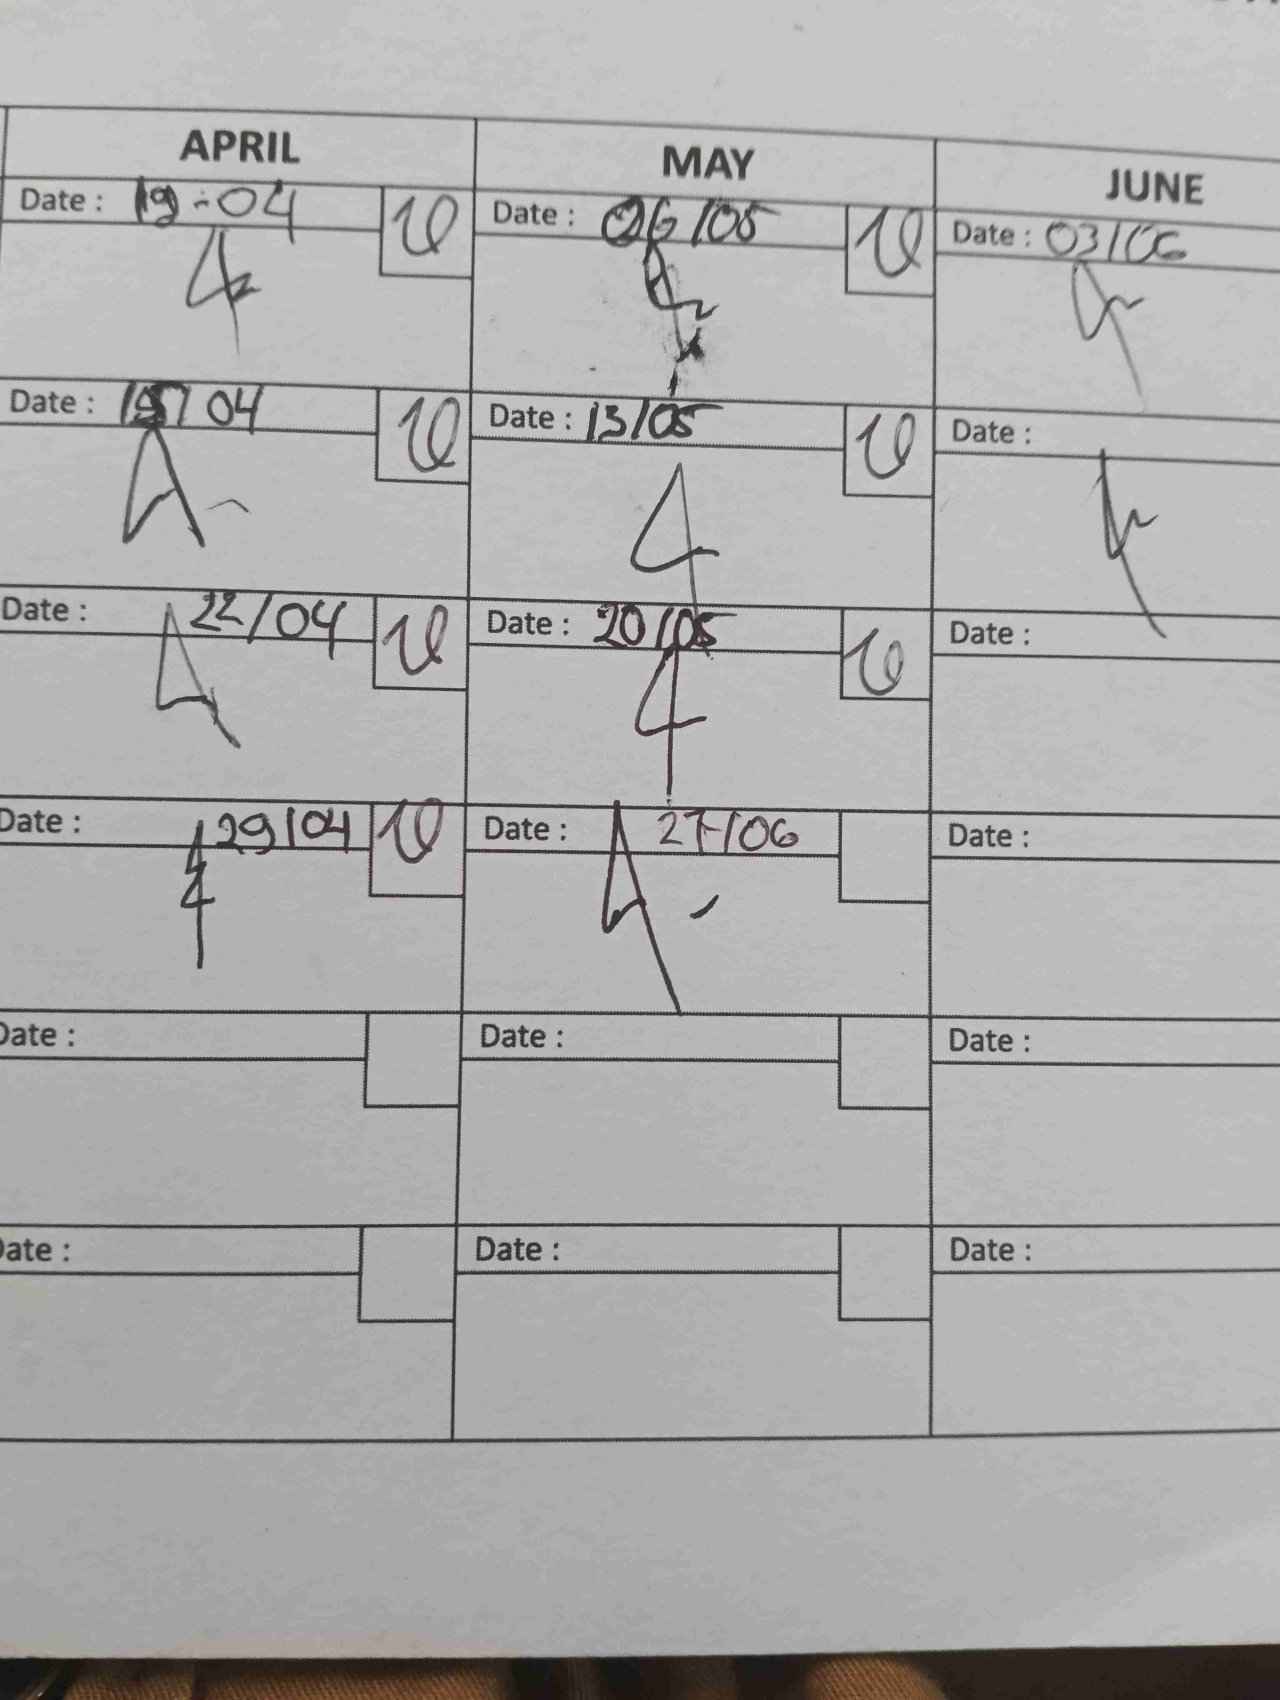 APRIL MAY JUNE
Date : 19-04 Date : 06/05 Date : 03/06
Date : 15/04 Date : 13/05 Date :
Date : 22/04 Date : 20/05 Date :
Date : 29/04 Date : 27/06 Date :
Date : Date : Date :
Date : Date : Date :